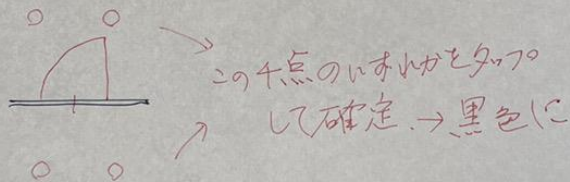 この4点のいずれかをタップ
して確定.→黒色に